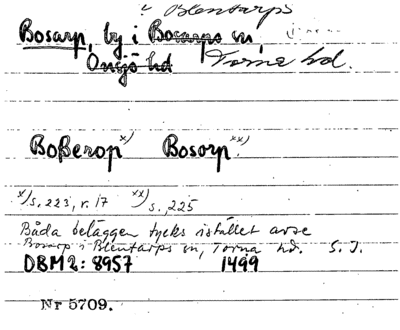 i Blentarps
Bosarp, by i Bosarps sn,
Onsjö hd Torna hd.
Boßerop x) Bosorp xx)
x) s. 223, r. 17 xx) s. 225
Båda beläggen tycks istället avse
Bosarp i Blentarps sn, Torna hd. S. J.
DBM 2: 8957 1499
Nr 5709.